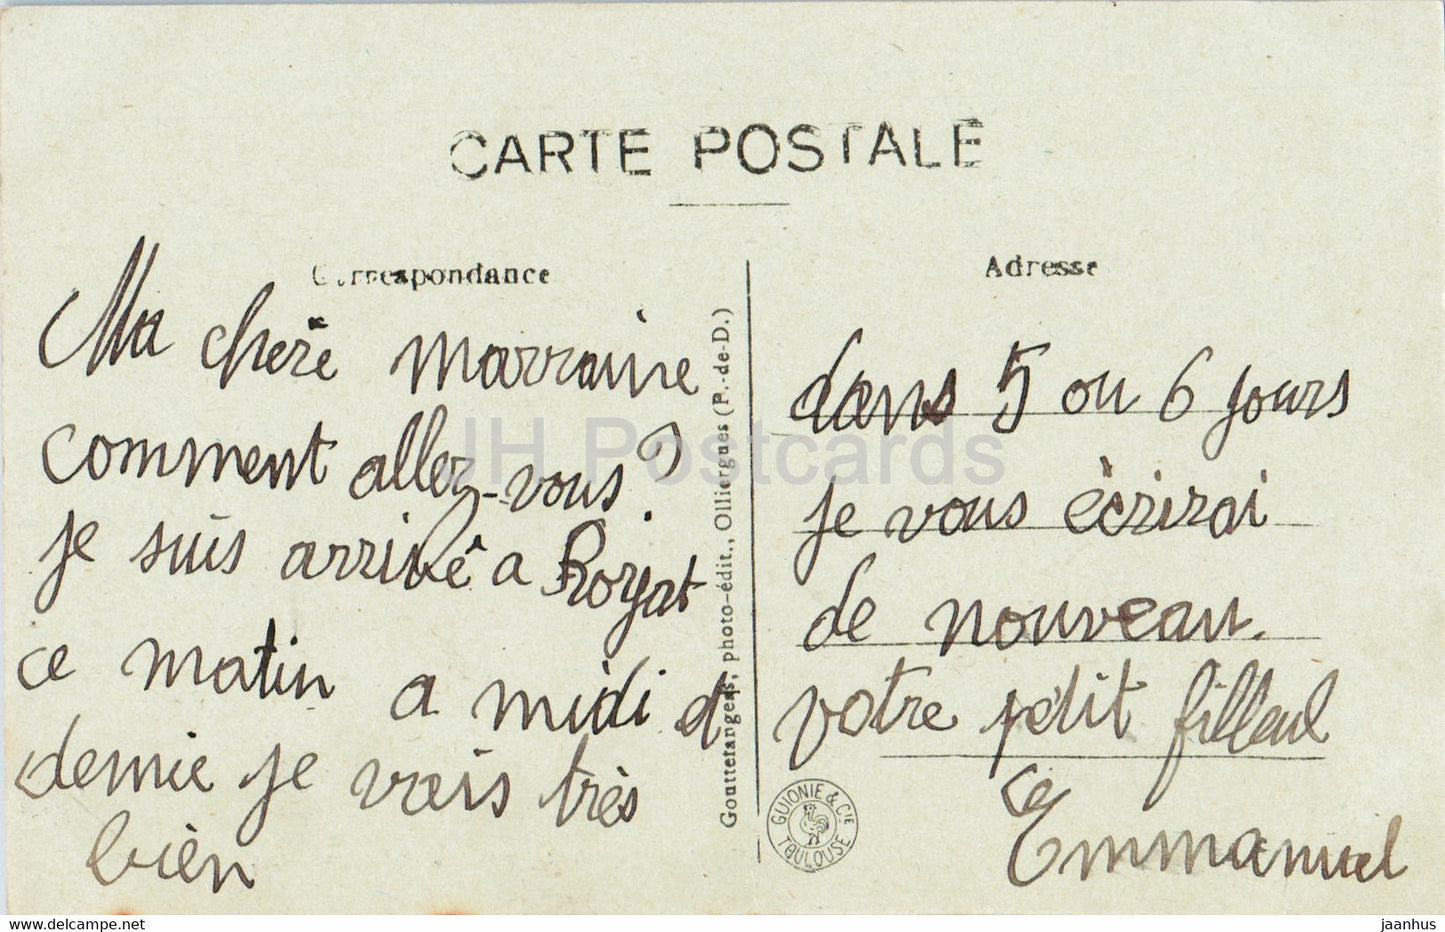 CARTE POSTALE
Correspondance
Ma chère marraine
comment allez-vous?
je suis arrivé a Royat
ce matin a midi et
demie je vais très
bien
Gouttefangeas, photo-édit., Olliergues (P.-de-D.)
Adresse
dans 5 ou 6 jours
je vous écrirai
de nouveau.
votre petit filleul
Emmanuel
GUIONIE & CIE
TOULOUSE
JH Postcards
www.delcampe.net
jaanhus